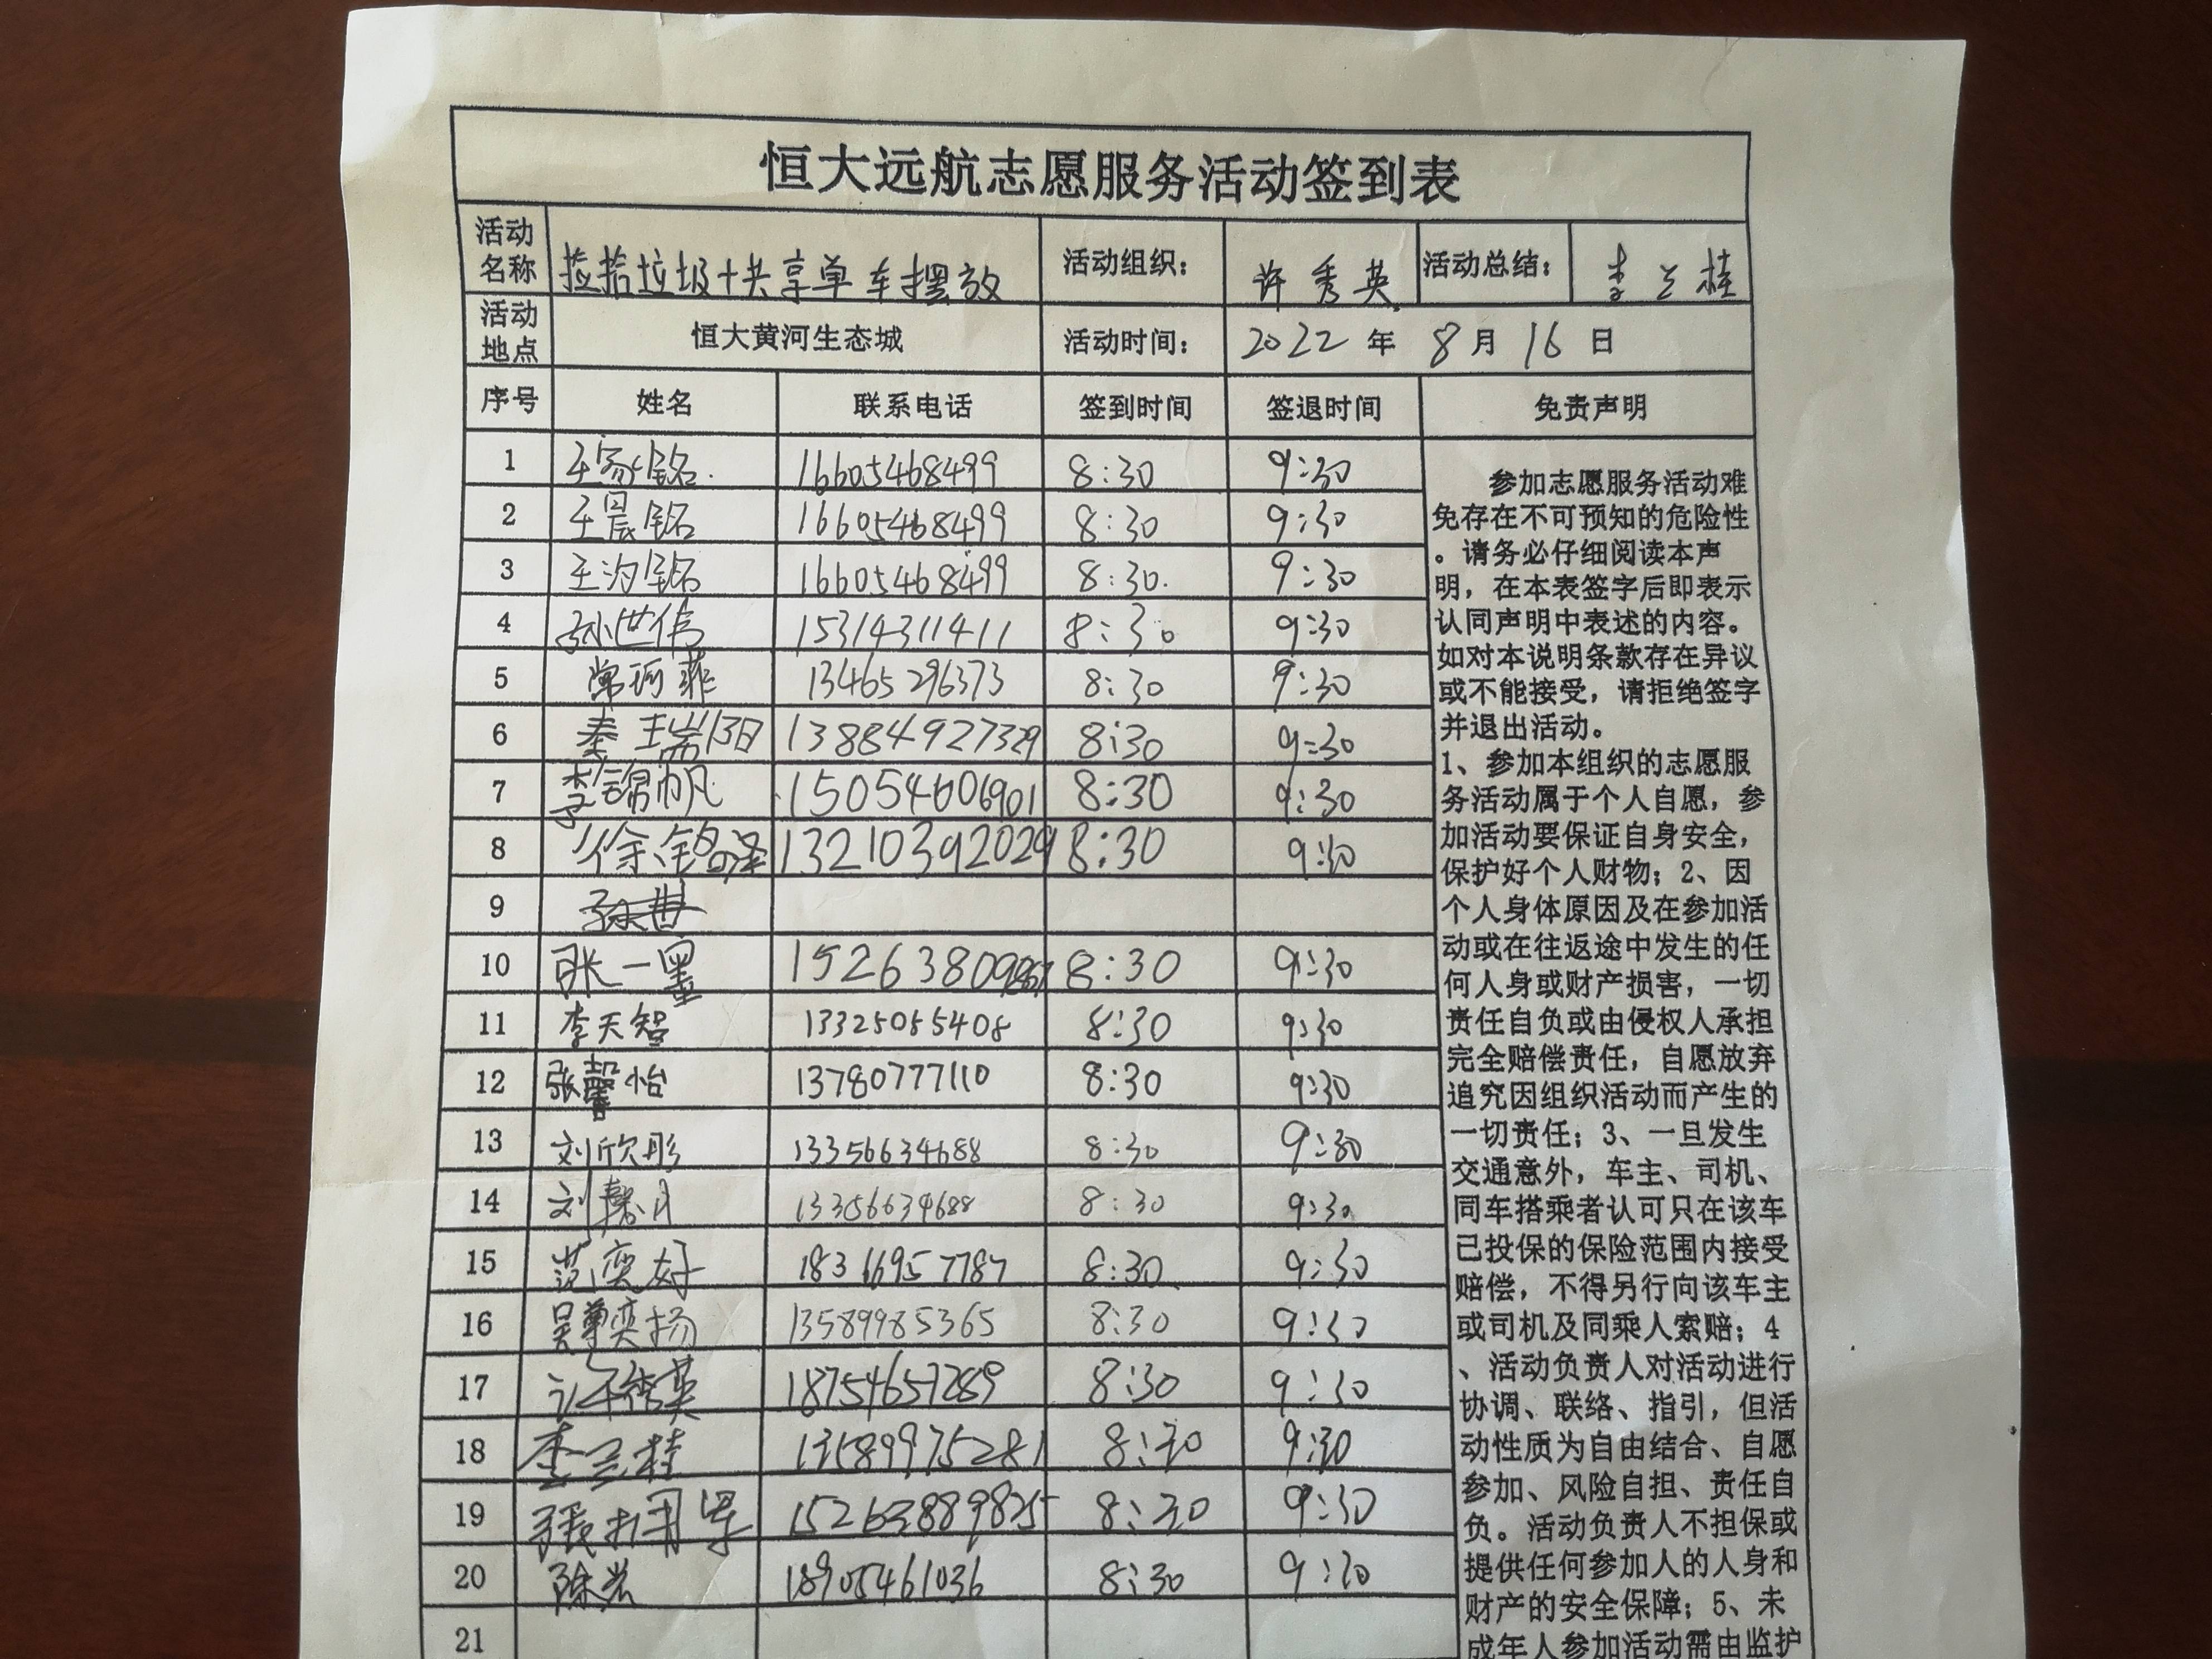 恒大远航志愿服务活动签到表
活动名称 捡拾垃圾+共享单车摆放 活动组织: 许秀英 活动总结: 李兰桂
活动地点 恒大黄河生态城 活动时间: 2022年8月16日
序号 姓名 联系电话 签到时间 签退时间 免责声明
1 王家铭 16605468499 8:30 9:30
2 王晨铭 16605468499 8:30 9:30
3 王汐铭 16605468499 8:30 9:30
4 孙世伟 15314311411 8:30 9:30
5 常珂菲 13465296373 8:30 9:30
6 秦 13884927329 8:30 9:30
7 李锦帆 15054606901 8:30 9:30
8 徐铭泽 13210392029 8:30 9:30
9
10 张一墨 15263809867 8:30 9:30
11 李天智 13325055408 8:30 9:30
12 张馨怡 13780777110 8:30 9:30
13 刘欣彤 13356634688 8:30 9:30
14 刘馨月 13356634688 8:30 9:30
15 范奕好 18366957787 8:30 9:30
16 吴尊奕扬 13589985365 8:30 9:30
17 许秀英 18754657289 8:30 9:30
18 李兰桂 13589975281 8:30 9:30
19 15263889825 8:30 9:30
20 陈岩 18905461036 8:30 9:30
21
参加志愿服务活动难
免存在不可预知的危险性
。请务必仔细阅读本声
明，在本表签字后即表示
认同声明中表述的内容。
如对本说明条款存在异议
或不能接受，请拒绝签字
并退出活动。
1、参加本组织的志愿服
务活动属于个人自愿，参
加活动要保证自身安全，
保护好个人财物；2、因
个人身体原因及在参加活
动或在往返途中发生的任
何人身或财产损害，一切
责任自负或由侵权人承担
完全赔偿责任，自愿放弃
追究因组织活动而产生的
一切责任；3、一旦发生
交通意外，车主、司机、
同车搭乘者认可只在该车
已投保的保险范围内接受
赔偿，不得另行向该车主
或司机及同乘人索赔；4
、活动负责人对活动进行
协调、联络、指引，但活
动性质为自由结合、自愿
参加、风险自担、责任自
负。活动负责人不担保或
提供任何参加人的人身和
财产的安全保障；5、未
成年人参加活动需由监护